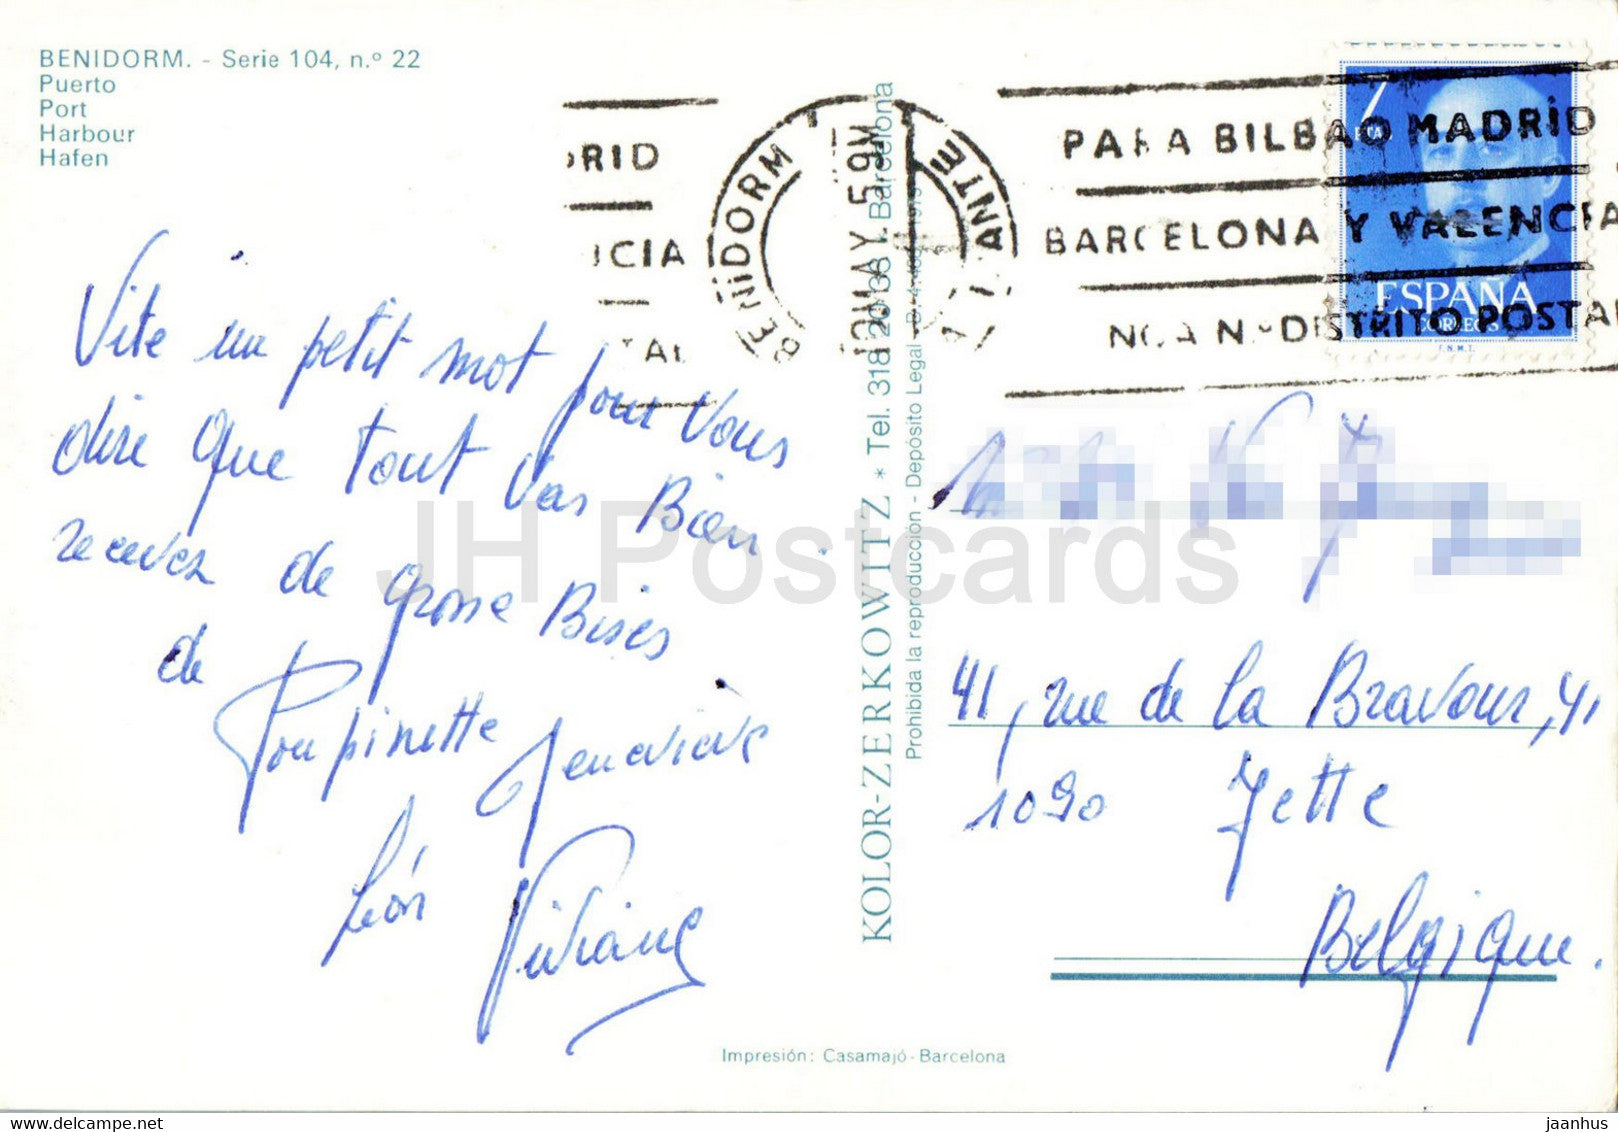 BENIDORM. - Serie 104, n.º 22
Puerto
Port
Harbour
Hafen
Vite un petit mot pour Vous
dire que tout Vas Bien.
recevez de grosse Bises
de
Poupinette Geneviève
Léon Viviane
KOLOR-ZERKOWITZ * Tel. 318 20 38 - Barcelona
Prohibida la reproducción - Depósito Legal
DRID
NCIA
TAL
BENIDORM
10MAY.5 9M
ALICANTE
PARA BILBAO MADRID
BARCELONA Y VALENCIA
DISTRITO POSTAL
7
PTA
ESPAÑA
CORREOS
F.N.M.T.
41, rue de la Bravour, 41
1090 Jette
Belgique.
Impresión: Casamajó - Barcelona
JH Postcards
www.delcampe.net
jaanhus